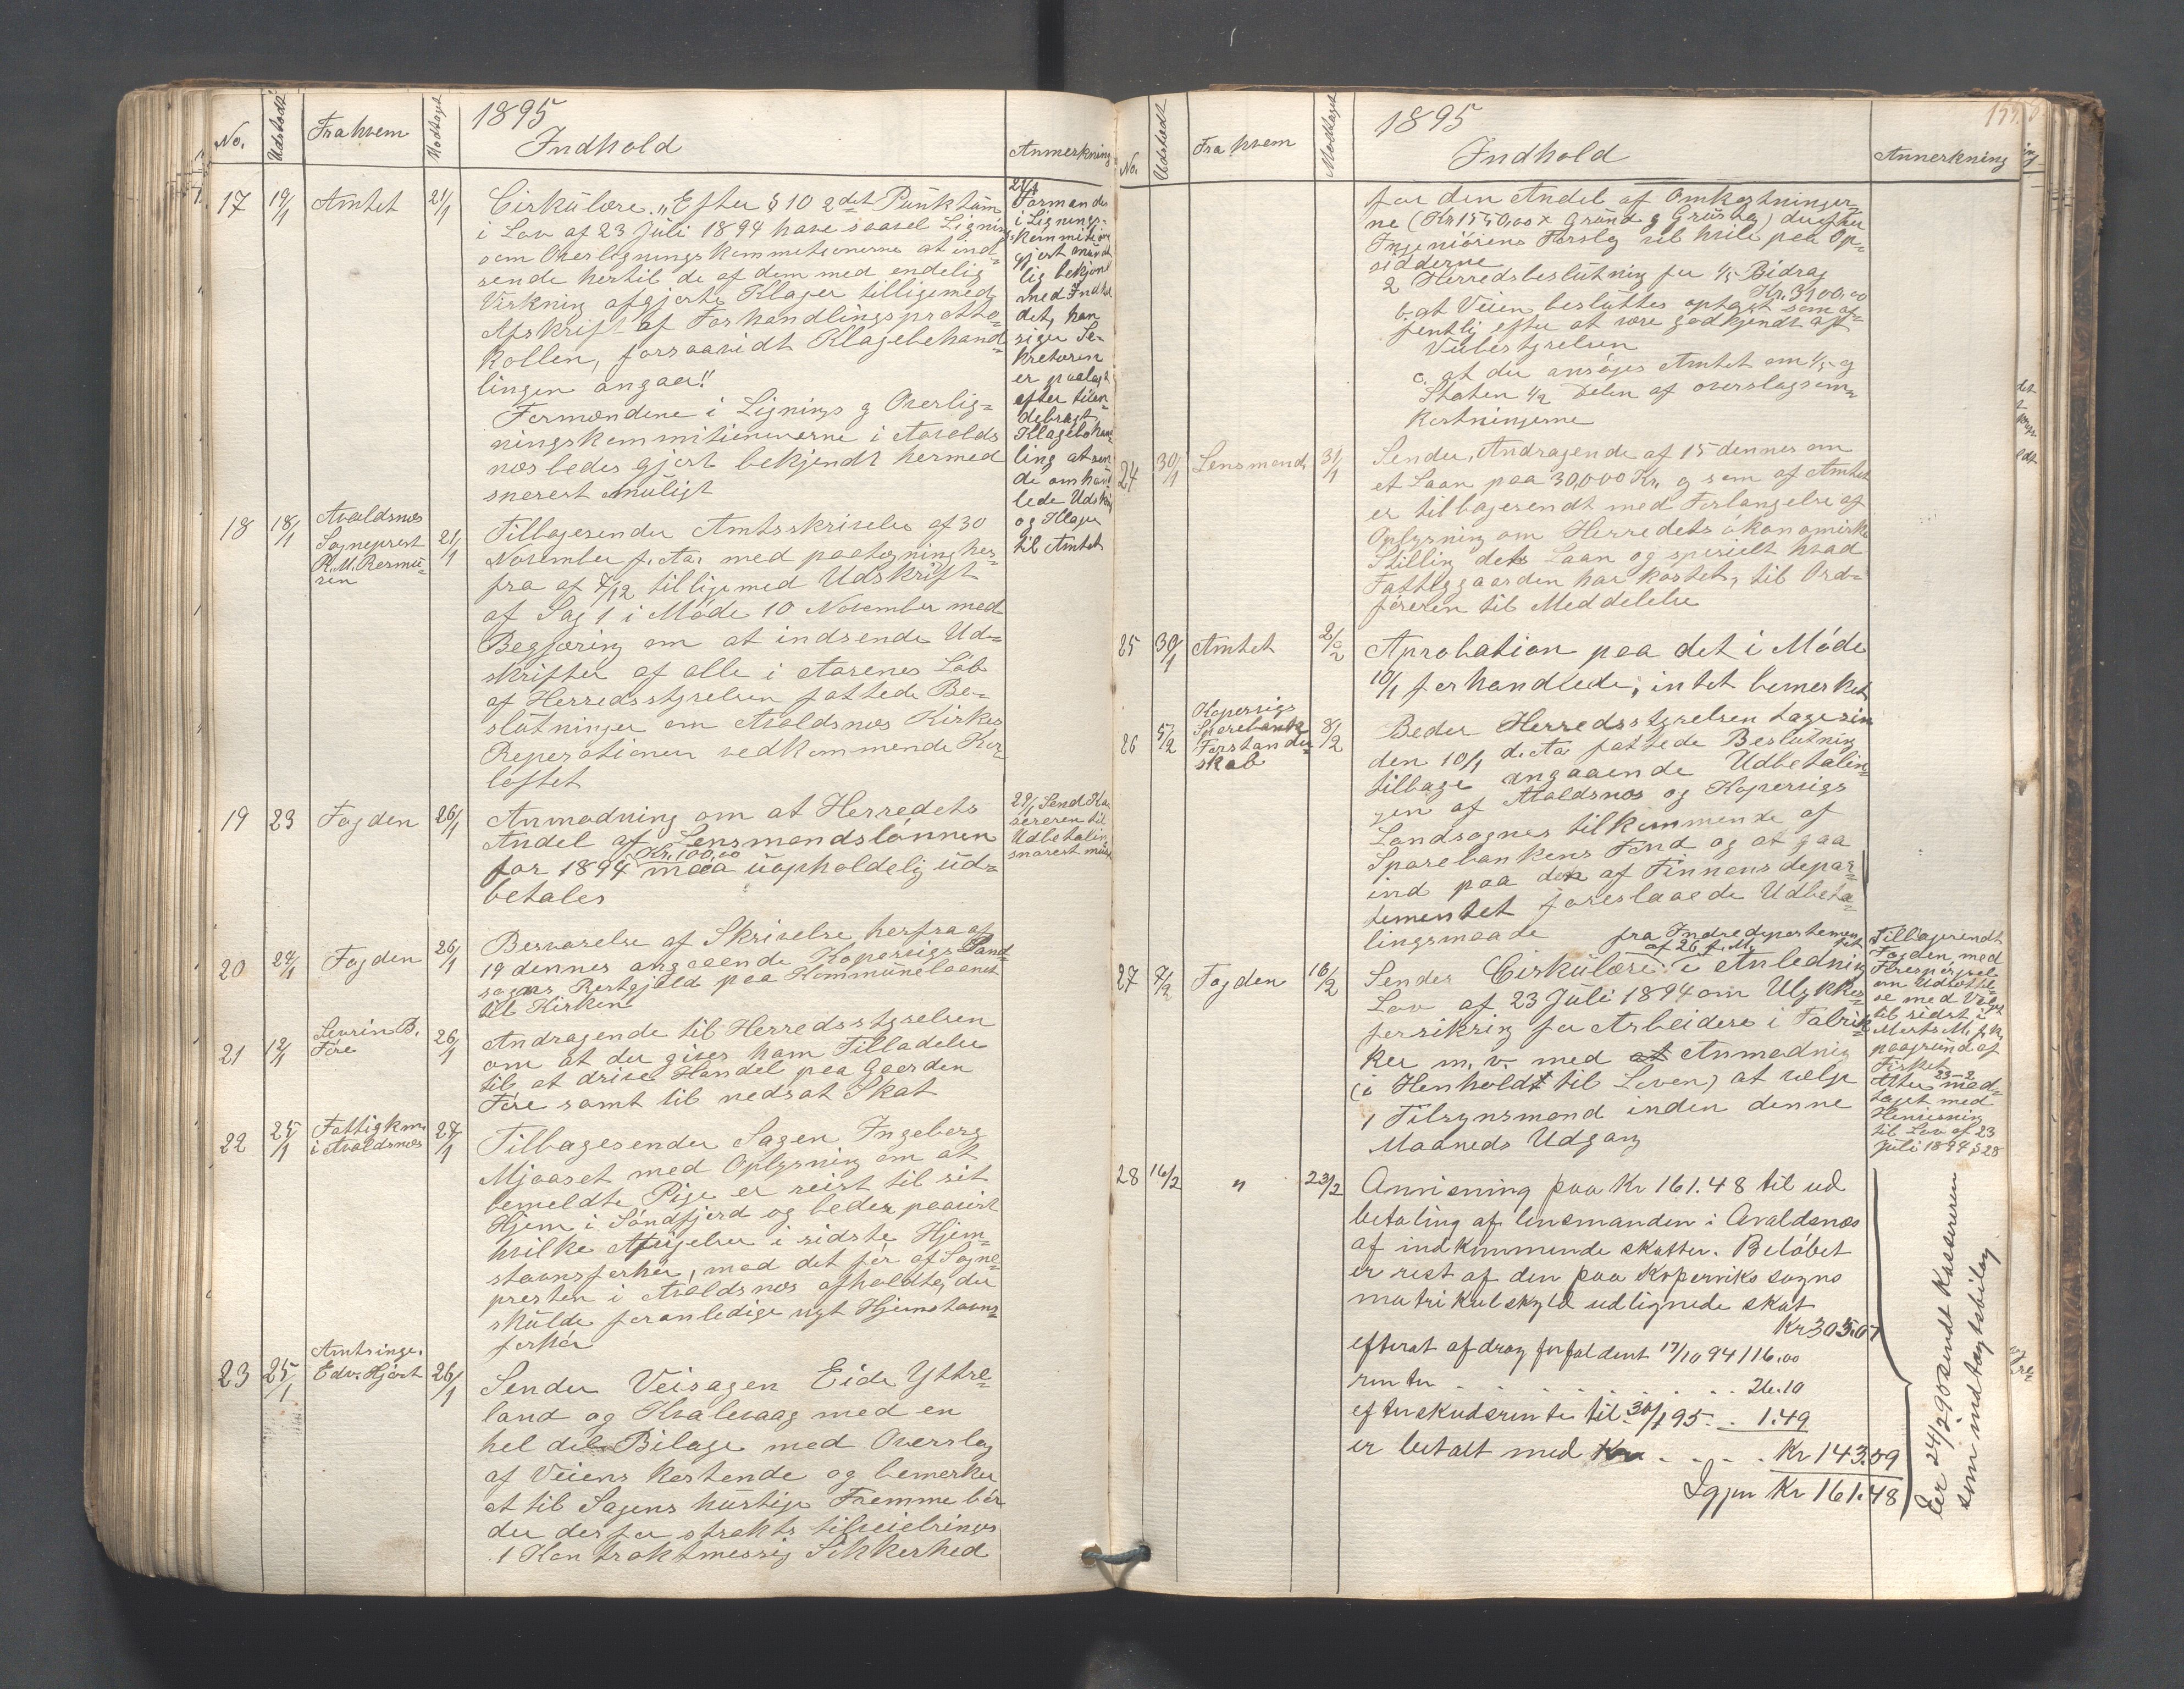 1895
No. Udstedt Fra hvem Modtaget Indhold Anmerkning
17 19/1 Amtet 21/1
Cirkülære. "Efter § 10 2det Pünktüm
i Lov af 23 Juli 1894 have saavel Lignings
som Overligningskommitionerne at ind=
sende hertil de af dem med endelig
Virkning afgjorte Klager tilligemed
Afskrift af Forhandlingsprotto=
kollen, forsaavidt Klagebehand=
lingen angaar"
Formændene i Lignings og Overlig=
ningskommitionerne i Avalds
næs bedes gjort bekjendt hermed
snarest muligt
24/1
Formanden
i Lignings=
kommition
gjort münt
lig bekjent
med Indhol
det, han
siger Se=
kretæren
er paalagt
efter tilen=
debragt
Klagebehand
ling at sen
de omhand
lede Udskrift
og Klager
til Amtet
18 18/1 Avaldsnæs
Sogneprest
R. M. Rasmü=
sen
21/1
Tilbagesender Amtsskrivelse af 30
November f. Aa. med paategning her=
fra af 7/12 tilligemed Udskrift
af Sag 1 i Möde 10 November med
Begjæring om at indsende Ud=
skrifter af alle i Aarenes Löb
af Herredsstyrelsen fattede Be=
slütninger om Avaldsnæs Kirkes
Reperationer vedkommende Kor=
loftet
19 23 Fogden 26/1
Anmodning om at Herredets
Andel af Lensmandslønnen
for 1894 Kr. 100,00 maa üopholdelig üd=
betales
29/1 Send Ka
sereren til
Udbetaling
snarest mülig
20 24/1 Fogden 26/1
Besvarelse af Skrivelse herfra af
19 dennes angaaende Kopervigs Land=
sogns Restgjeld paa Kommünelaanet
til Kirken
21 12/1 Sevrin B.
Före
26/1
Andragende til Herredsstyrelsen
om at der gives ham Tilladelse
til at drive Handel paa Gaarden
Före samt til nedsat Skat
22 25/1 Fattigkm.
i Avaldsnæs
27/1
Tilbagesender Sagen Ingeborg
Mjaaset med Oplysning om at
bemeldte Pige er reist til sit
Hjem i Söndfjord og beder paavist
hvilke Afvigelser i sidste Hjem=
stavnsforhör, mod det för af Sogne=
presten i Avaldsnæs afholdte, der
skülde foranledige nyt Hjemstavns=
forhör
23 25/1 Amtsinge.
Edv. Hjort
26/1
Sender Veisagen Eide Yttre=
land og Kvalevaag med en
hel del Bilage med Overslag
af Veiens kostende og bemerker
at til Sagens hürtige Fremme bör
der derfor strakts tilveiebringes
1 Kontraktmessig Sikkerhed
1895
No. Udstedt Fra hvem Modtaget Indhold Anmerkning
for den Andel af Omkostninger=
ne (Kr 1550,00 x Gründ og Grüstag) der efter
Ingeniörens Forslag vil hvile paa Op=
sidderne
2 Herredsbeslütning for 1/5 Bidrag
Kr. 3100,00
b. at Veien beslüttes optaget som of=
fentlig efter at være godkjendt af
Veibestyrelsen
c. at der ansöges Amtet om 1/5 og
Staten 1/2 Delen af overslagsom=
kostningerne
24 30/1 Lensmand 31/1
Sender Andragende af 15 dennes om
et Laan paa 30,000 Kr. og som af Amtet
er tilbagesendt med Forlangelse af
Oplysning om Herredets økonomiske
Stilling dets Laan og specielt hvad
Fattiggaarden har kostet, til Ord=
föreren til Meddelelse
25 30/1 Amtet 2/2
Aprobation paa det i Möde
10/1 forhandlede, intet bemerket
26 5/2 Kopervigs
Sparebanks
Forstander=
skab
8/2
Beder Herredsstyrelsen tage sin
den 10/1 d. Aa fattede Beslütning
tilbage angaaende Udbetalin=
gen af Avaldsnæs og Kopervigs
Landsognes tilkommende af
Sparebankens Fond og at gaa
ind paa den af Finnansdepar=
tementet foreslaaede Udbeta=
lingsmaade
27 7/2 Fogden 10/2
fra Indredepartemen
tet
af 26 f. M.
Sender Cirkülære i Anledning
Lov af 23 Juli 1894 om Ulykkes=
forsikring for Arbeidere i Fabrik=
ker m. v. med at Anmodning
(i Henhold til Loven) at vælge
1 Tilsynsmand inden denne
Maaneds Udgang
Tilbagesendt
Fogden, med
Forespörgsel
om Udsættel=
se med Valget
til sidst i
Marts M. f. k.
paagründ af
Fisket
23-2
Atter mod=
taget med
Henvisning
til Lov af 23
Juli 1894 § 28
28 16/2 " 23/2
Anvisning paa Kr 161.48 til ud
betaling af lensmanden i Avaldsnæs
af indkommende skatter. Beløbet
er rest af den paa Koperviks sogns
matrikulskyld udlignede skat
Kr 305.07
efterat afdrag forfaldent 17/10 94 116.00
renter . . . . . . . . . 26.10
efterskudsrente til 30/1 95 . . 1.49
er betalt med . . . . Kr 143.59
Igjen Kr 161.48
Er 24/2 90 sendt Kassereren
som indtægtsbilag